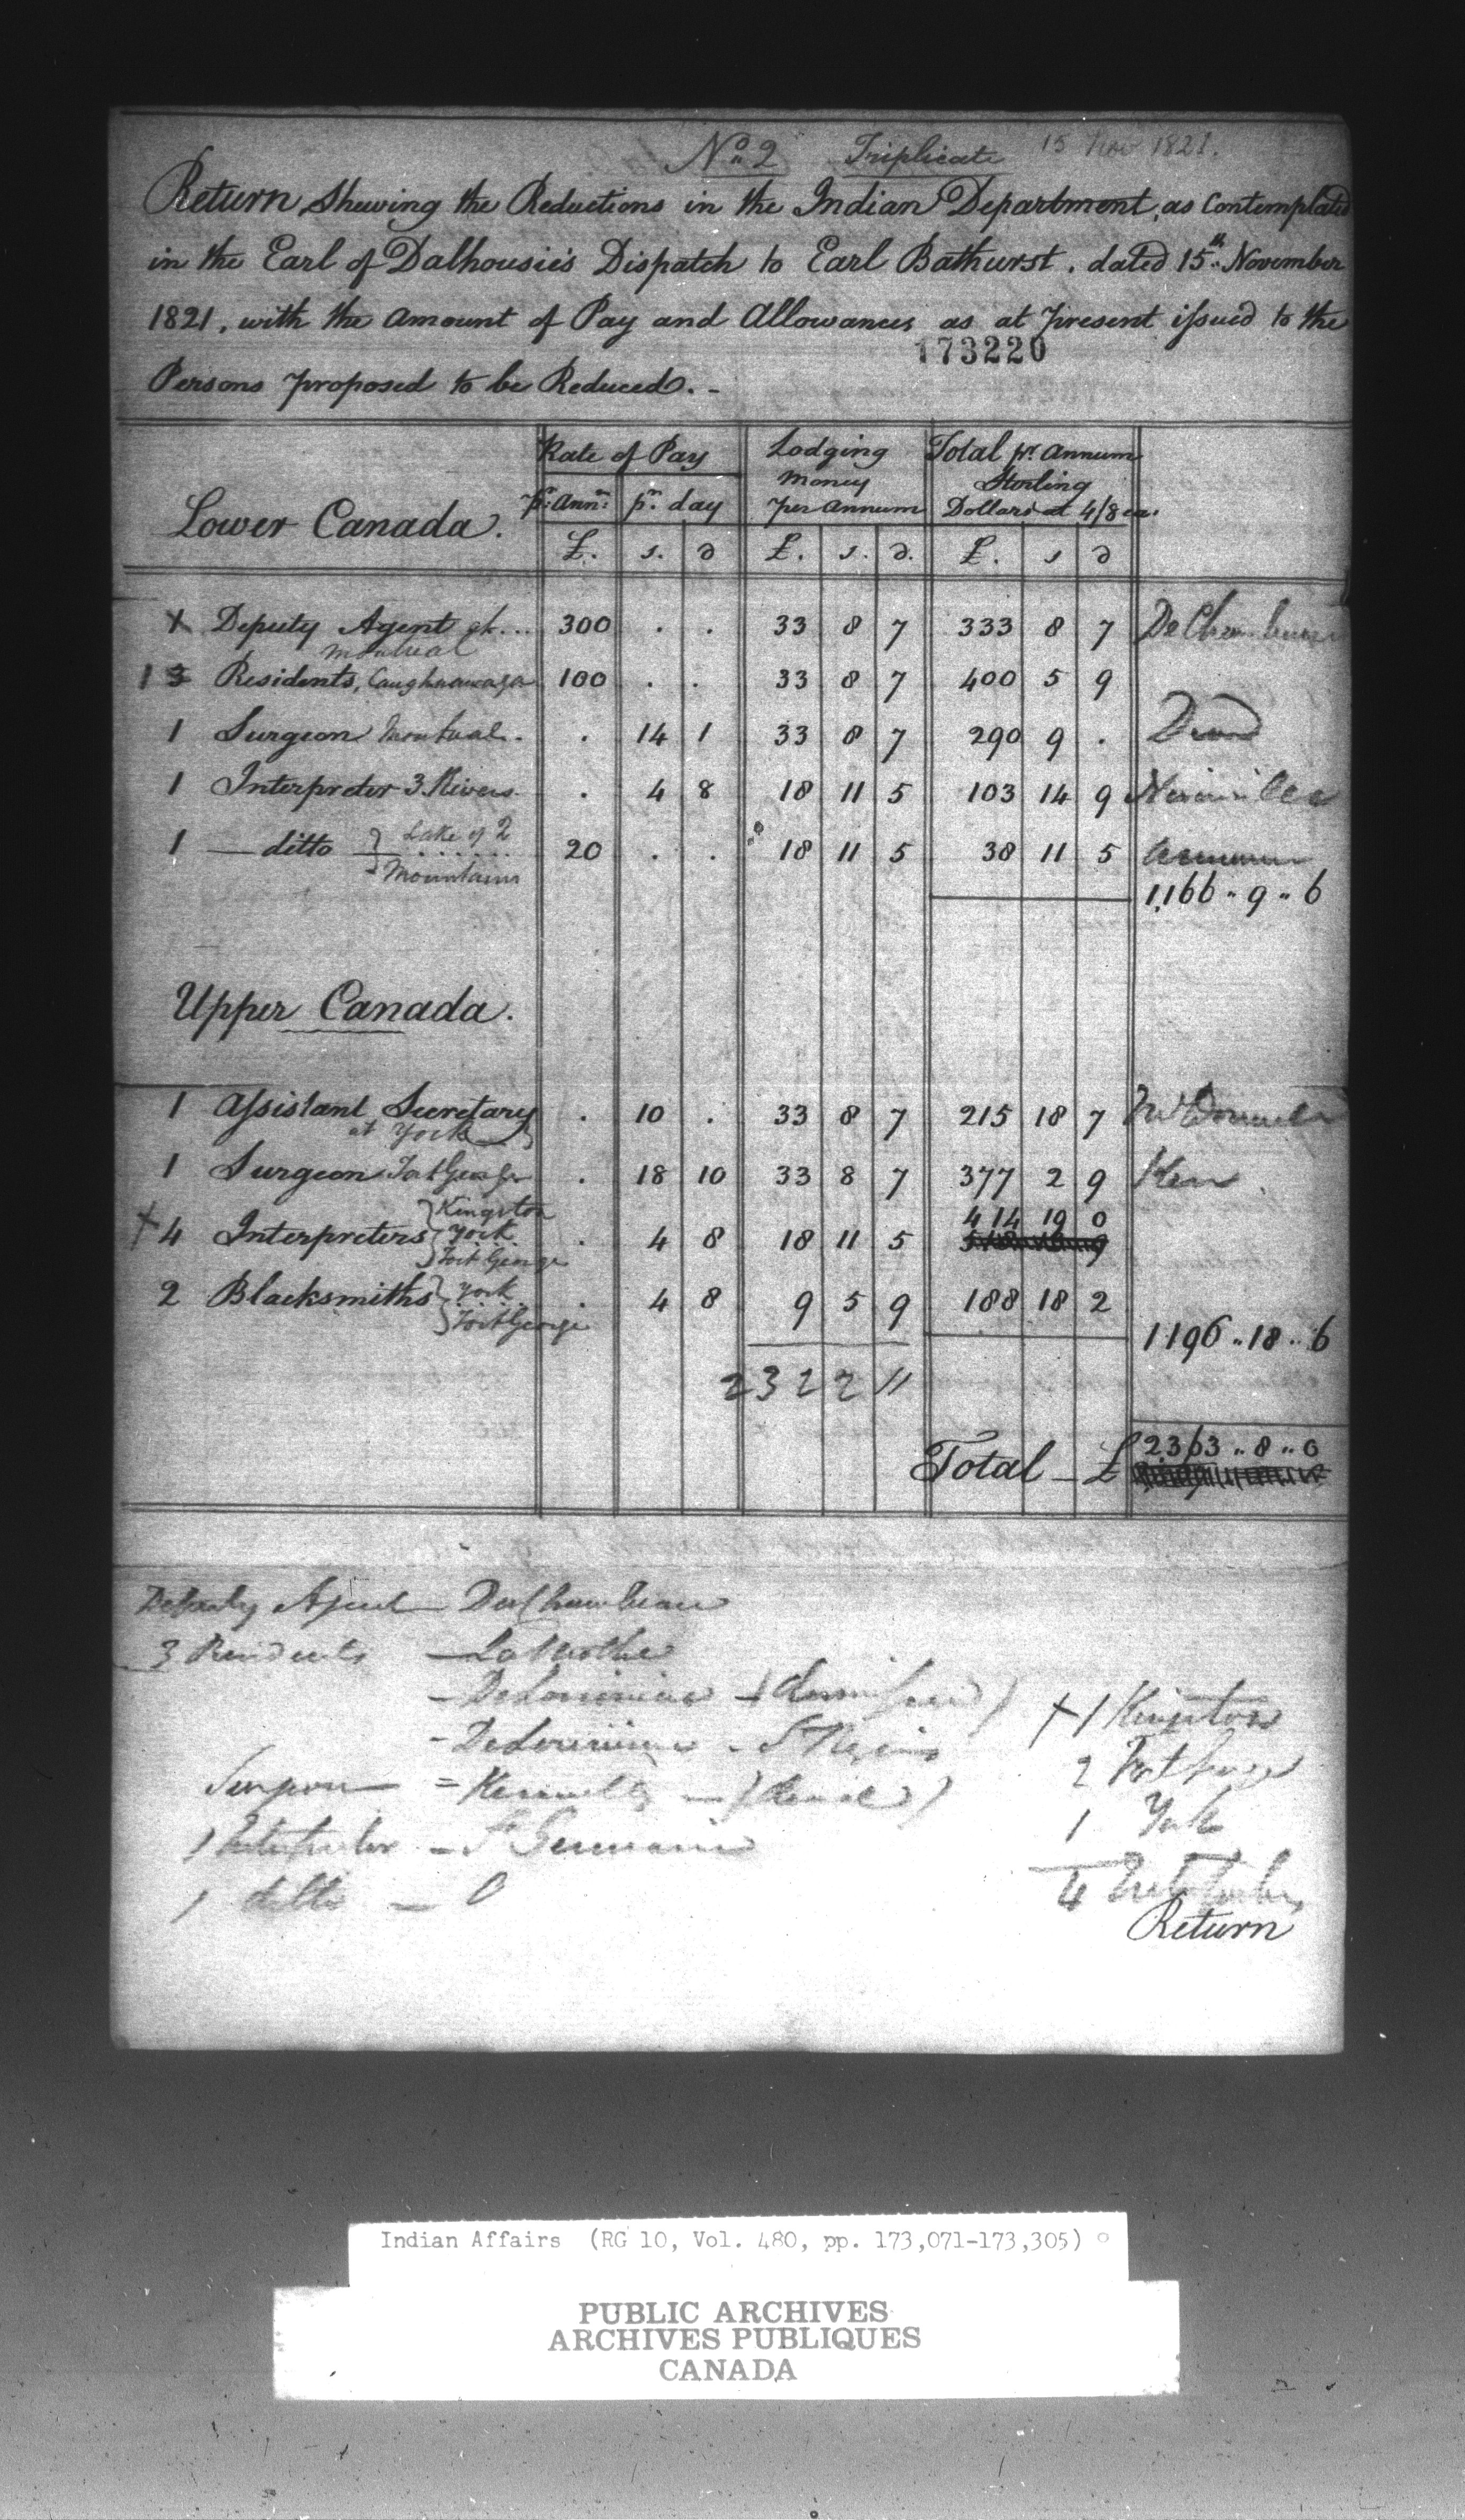 No. 2 Triplicate 15 Nov 1821.
Return Shewing the Reductions in the Indian Department, as Contemplated
in the Earl of Dalhousie's Dispatch to Earl Bathurst. dated 15th November
1821, with the Amount of Pay and Allowances as at present issued to the
173220
Persons proposed to be Reduced. -
Lower Canada.
Rate of Pay
pr. Annm. pr. day
£. s. d
Lodging
Money
per annum
£. s. d.
Total pr. Annum
Sterling
Dollars at 4/8 ea.
£. s d
1 Deputy Agent at ... 300 . . 33 8 7 333 8 7
Montreal
1 3 Residents, Caughnawaga 100 . . 33 8 7 400 5 9
1 Surgeon Montreal . 14 1 33 8 7 290 9 .
1 Interpreter 3 Rivers . 4 8 18 11 5 103 14 9
1 — ditto Lake of 2 Mountains 20 . . 18 11 5 38 11 5
1,166 .. 9 .. 6
Upper Canada.
1 Assistant Secretary . 10 . 33 8 7 215 18 7
at York
1 Surgeon Fort George . 18 10 33 8 7 377 2 9 Kerr
414 19 0
+ 4 Interpreters Kingston York Fort George . 4 8 18 11 5
2 Blacksmiths York Fort George . 4 8 9 5 9 188 18 2
1196 .. 18 .. 6
232 2 11
2363 .. 8 .. 0
Total — £
Deputy Agent — DeChambeau
3 Residents — LaMothe
- DeLorimier
- DeLorimier - St Regis
Surgeon =
1 Interpreter - St Germain
1 ditto — 0
+ 1 Kingston
2 Fort George
1 York
4 Interpreters
Return
Indian Affairs (RG 10, Vol. 480, pp. 173,071-173,305)
PUBLIC ARCHIVES
ARCHIVES PUBLIQUES
CANADA